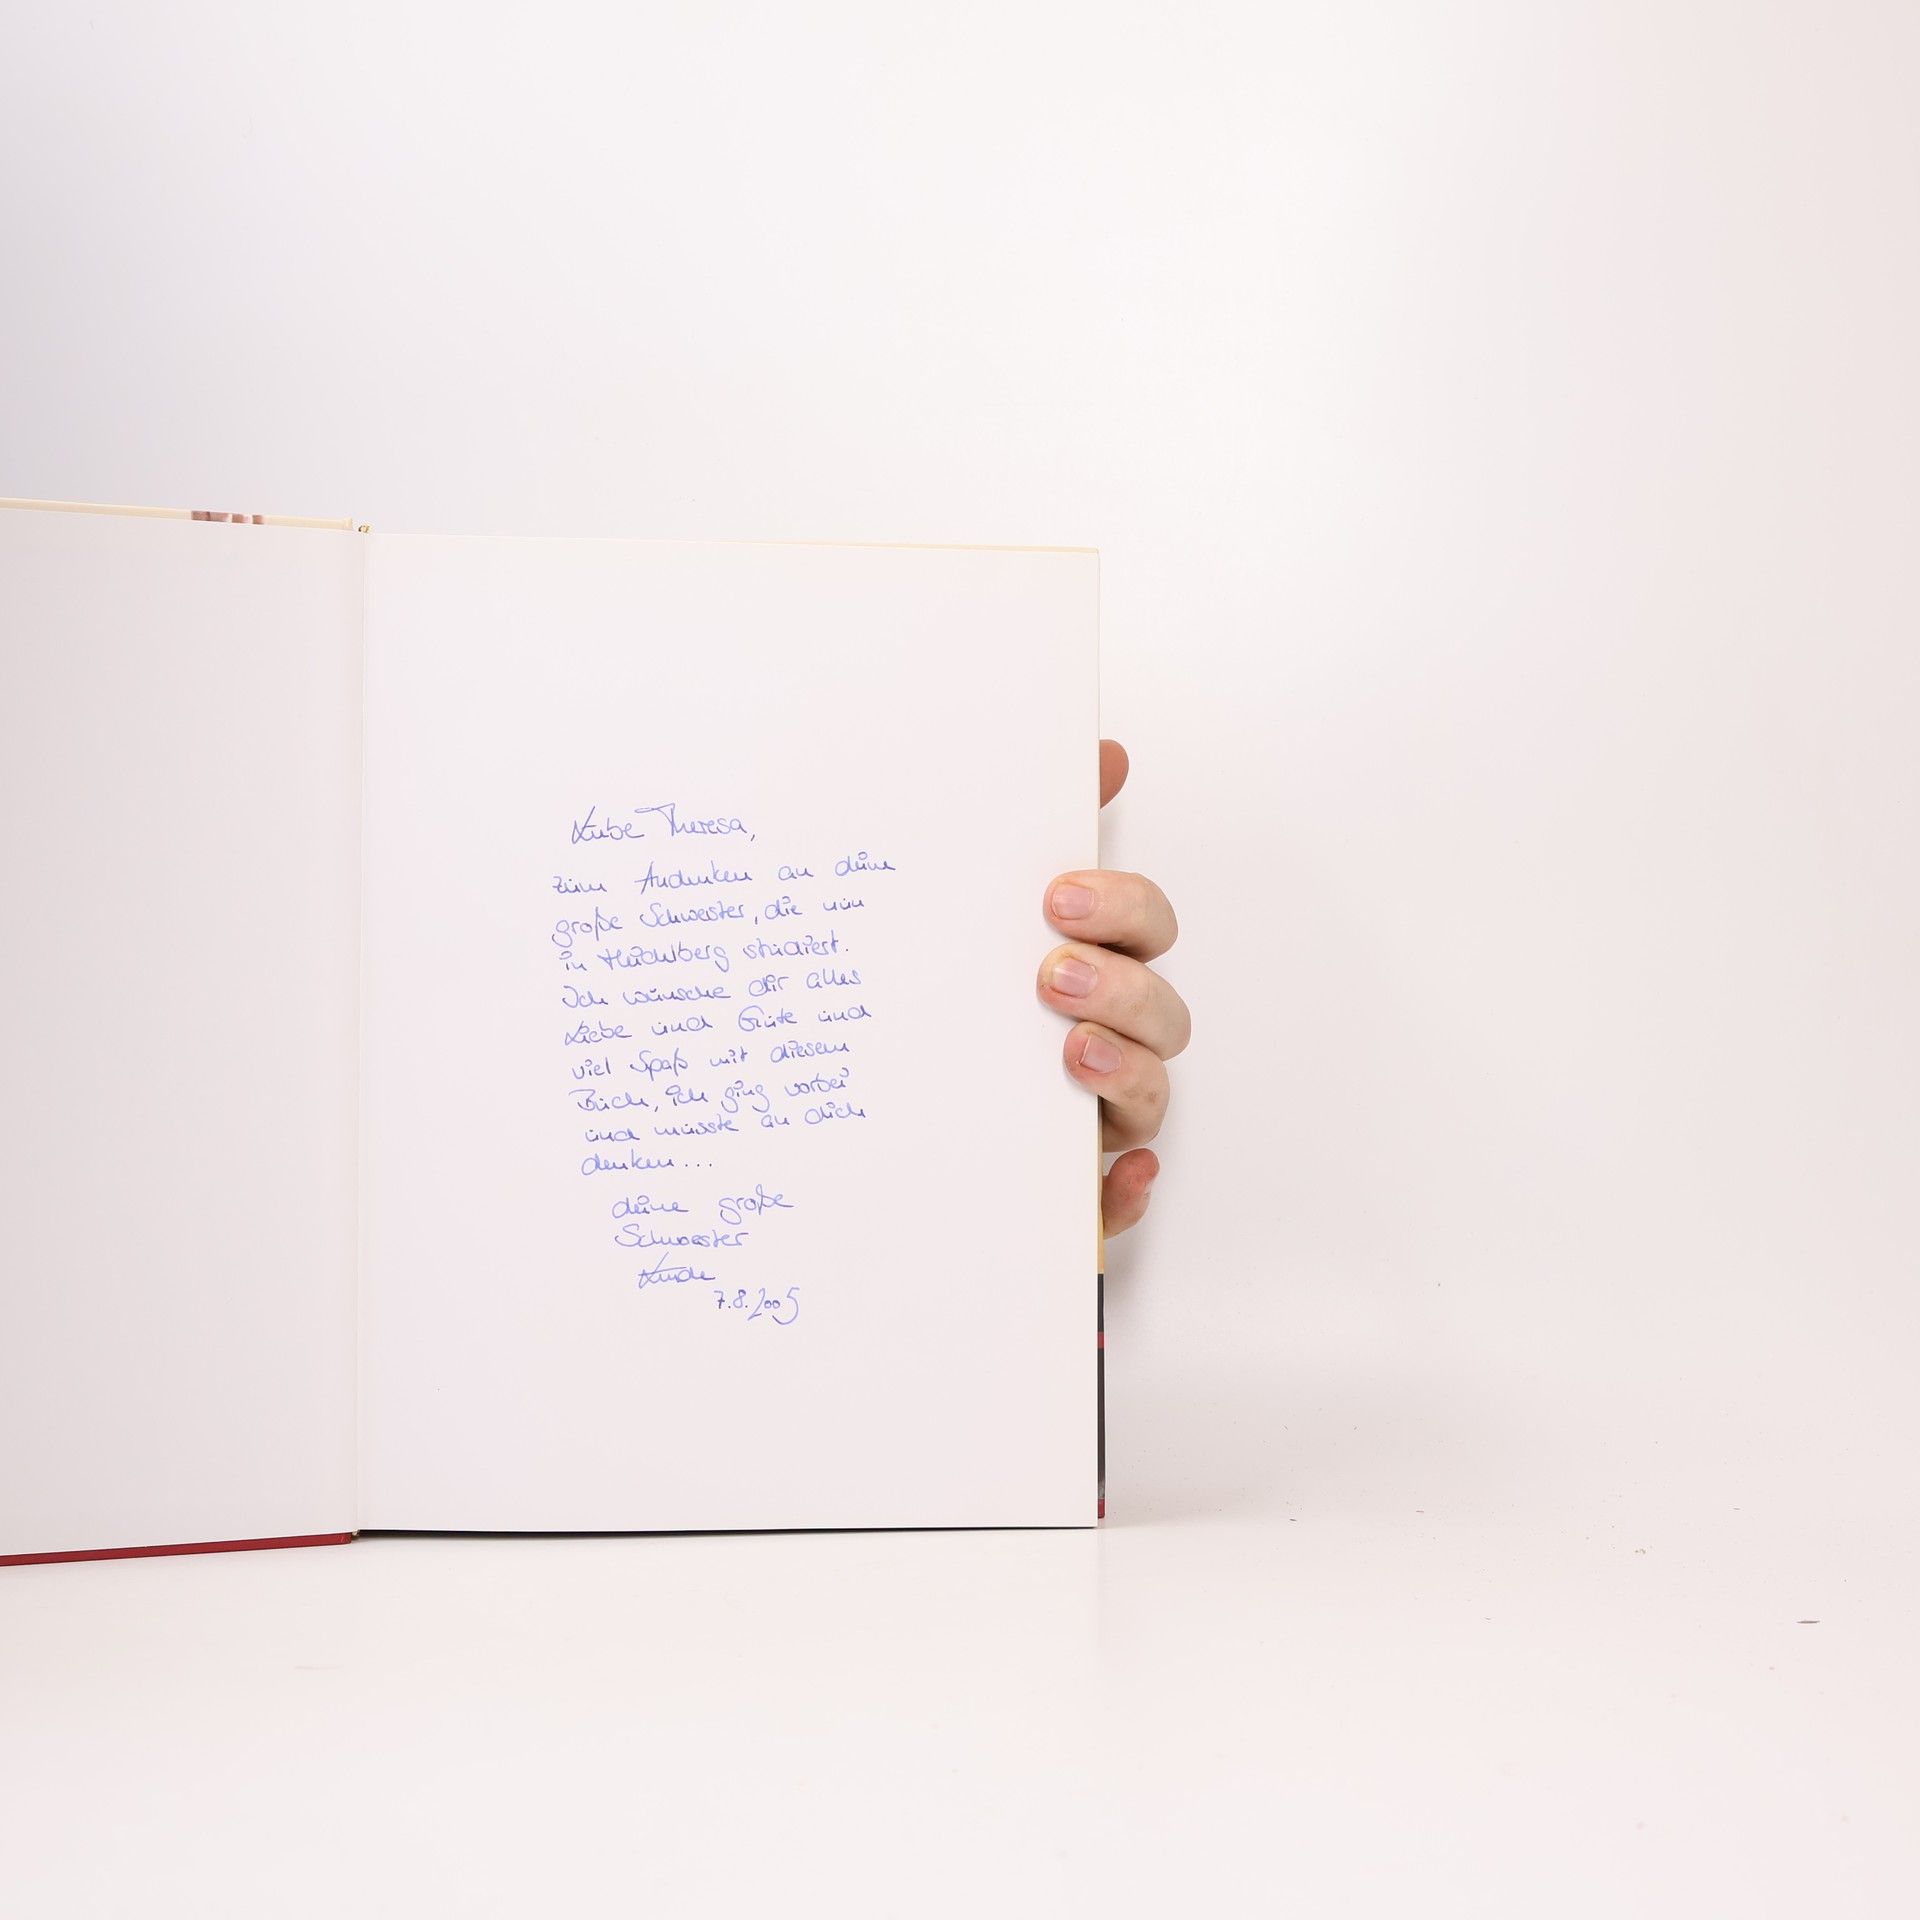 Liebe Theresa,
zum Andenken an deine
große Schwester, die nun
in Heidelberg studiert.
Ich wünsche dir alles
Liebe und Gute und
viel Spaß mit diesem
Buch, ich ging vorbei
und musste an dich
denken...
deine große
Schwester
7.8.2005